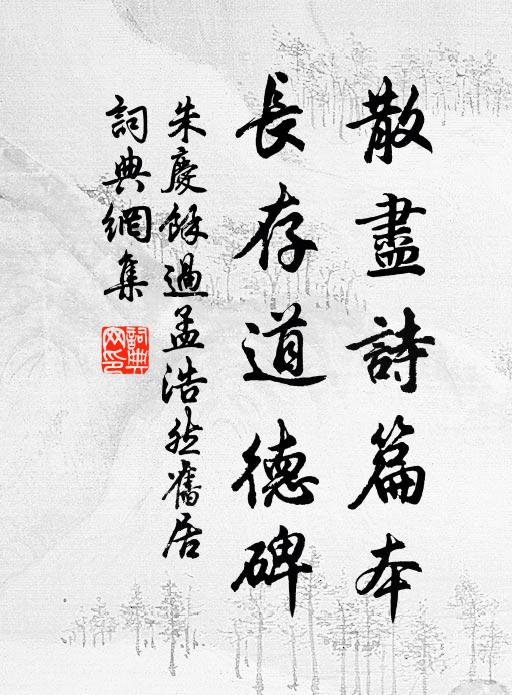 散盡詩篇本
長存道德碑
朱慶餘過孟浩然舊居
詞典網集
詞典網印